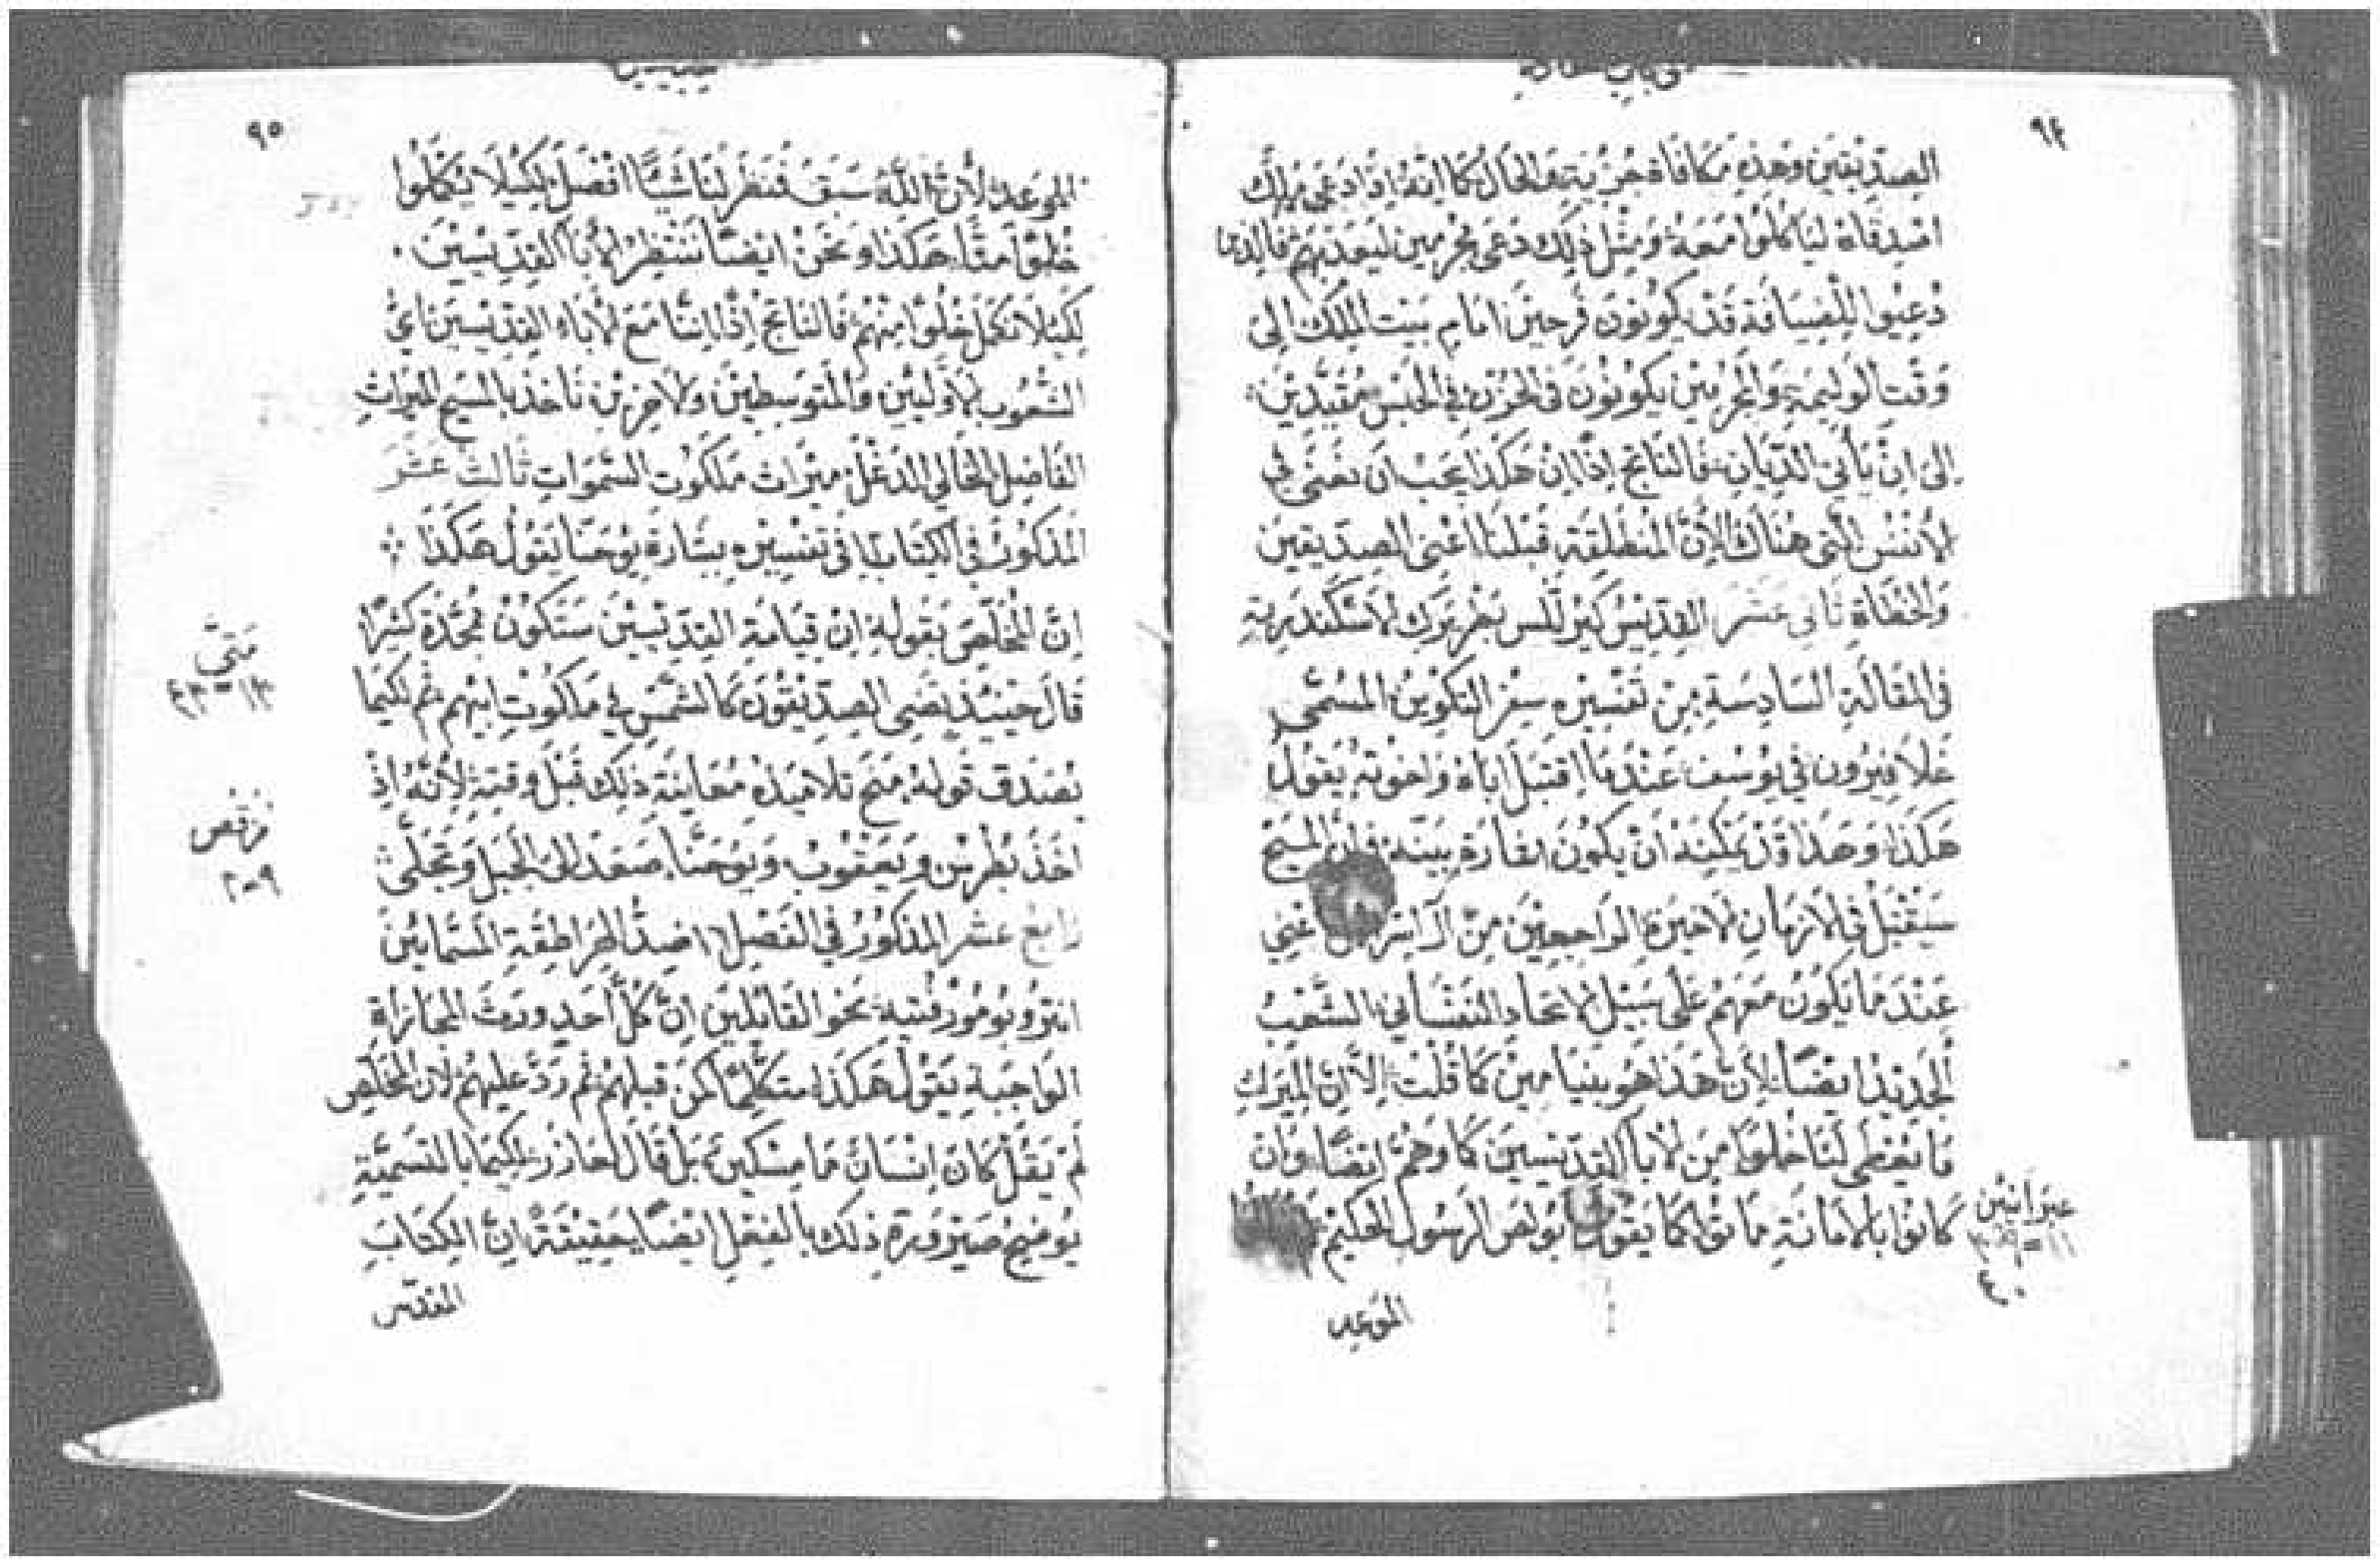 ٩٤
الصديقين وهذه مكافاة جزيية والحال كما انه اذا دعى ملك
اصدقاه لياكلوا معه ومثل ذلك دعى مجرمين ليعذبهم فالذين
دعيوا للضيافة قد يكونون فرحين امام بيت الملك الى
وقت الوليمة والمجرمين يكونون في الحزن في الحبس مقيدين
الى ان ياتي الديان فالناتج اذا ان هكذا يجب ان نعتني في
الانفس التي هناك الان المنطلقة قبلنا اعني الصديقين
والخطاة ثاني عشر القديس كيرللس بطريرك الاسكندرية
في المقالة السادسة من تفسيره سفر التكوين المسمى
غلافيرون في يوسف عندما اقتبل اباه واخوته يقول
هكذا وهذا قد يمكنه ان يكون اشارة بينة فان المسيح
سيقبل في الازمان الاخيرة الراجعين من ال اسراييل اعني
عندما يكون معهم على سبيل الاتحاد النفساني الشعب
الجديد ايضا لان هذا هو بنيامين كما قلت الا ان الميراث
ما يعطى لنا خلوا من الابا القديسين كما وهم ايضا وان
كانوا بالامانة ماتوا كما يقول بولص الرسول الحكيم
عبرانيين
١١ = ٣٩
٤٠
الموعد
٩٥
الموعد لان الله سبق فنظر لنا شيا افضل لكيلا يكملوا
خلوا منا هكذا ونحن ايضا ننتظر الابا القديسين
لكيلا نكمل خلوا منهم فالناتج اذا اننا مع الاباء القديسين اي
الشعوب الاوليين والمتوسطين والاخرين ناخذ بالمسيح الميراث
الفاضل الخالي الدغل ميراث ملكوت السموات ثالث عشر
المذكور في الكتاب في تفسيره بشارة يوحنا يقول هكذا
ان المخلص بقوله ان قيامة القديسين ستكون ممجدة كثيرا
قال حينيذ يضي الصديقون كالشمس في ملكوت ابيهم ثم لكيما
يصدق قوله منح تلاميذه معاينة ذلك قبل وقته لانه اذ
اخذ بطرس ويعقوب ويوحنا صعد الى الجبل وتجلى
رابع عشر المذكور في الفصل ضد الهراطقة المسمايين
انتروبومورفتيه نحو القايلين ان كل احد ورث المجازاة
الواجبة يقول هكذا متكلما كمن قبلهم ثم رد عليهم لان المخلص
لم يقل كان انسان ما مسكين بل قال لعازر لكيما بالتسمية
يوضح صيرورة ذلك بالفعل ايضا حقيقة ان الكتاب
متي
١٣ = ٤٣
مرقص
٩ = ٢
المقدس